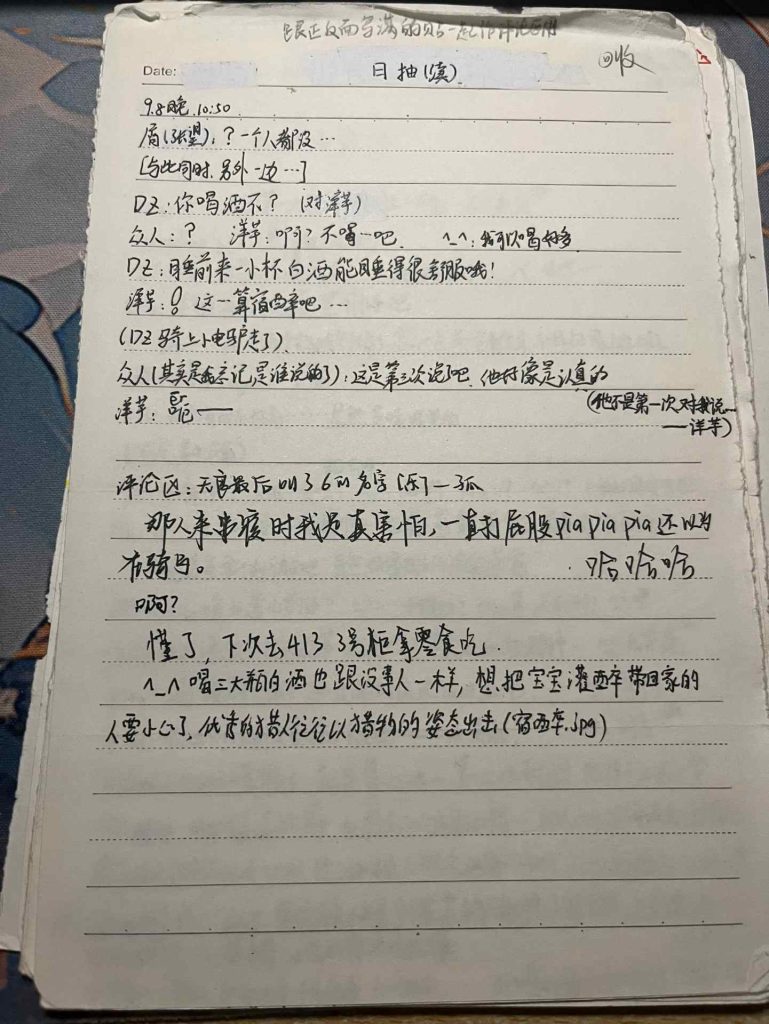 跟正反面写满的贴一起作评论区用
回收
Date:
日抽(续)
9.8晚 10:50
眉(张望):?一个人都没…
[与此同时,另外一边…]
DZ:你喝酒不?(对洋芋)
众人:? 洋芋:啊?不喝一吧. ^_^:我可以喝好多
DZ:睡前来一小杯白酒能睡得很舒服哦!
洋芋:! 这一算宿醉吧…
(DZ骑上小电驴走了)
众人(其实是忘记是谁说的了):这是第三次说了吧,他好像是认真的
洋芋: 一一
(他不是第一次对我说…
——洋芋)
评论区:无良最后叫了6的名字[乐]一孤
那人来串寝时我是真害怕,一直打屁股pia pia pia还以为
有骑马。
哈哈哈
啊?
懂了,下次去413 3号柜拿零食吃.
^_^喝三大瓶白酒也跟没事人一样,想把宝宝灌醉带回家的
人要小心了,优秀的猎人往往以猎物的姿态出击(宿醉.jpg)